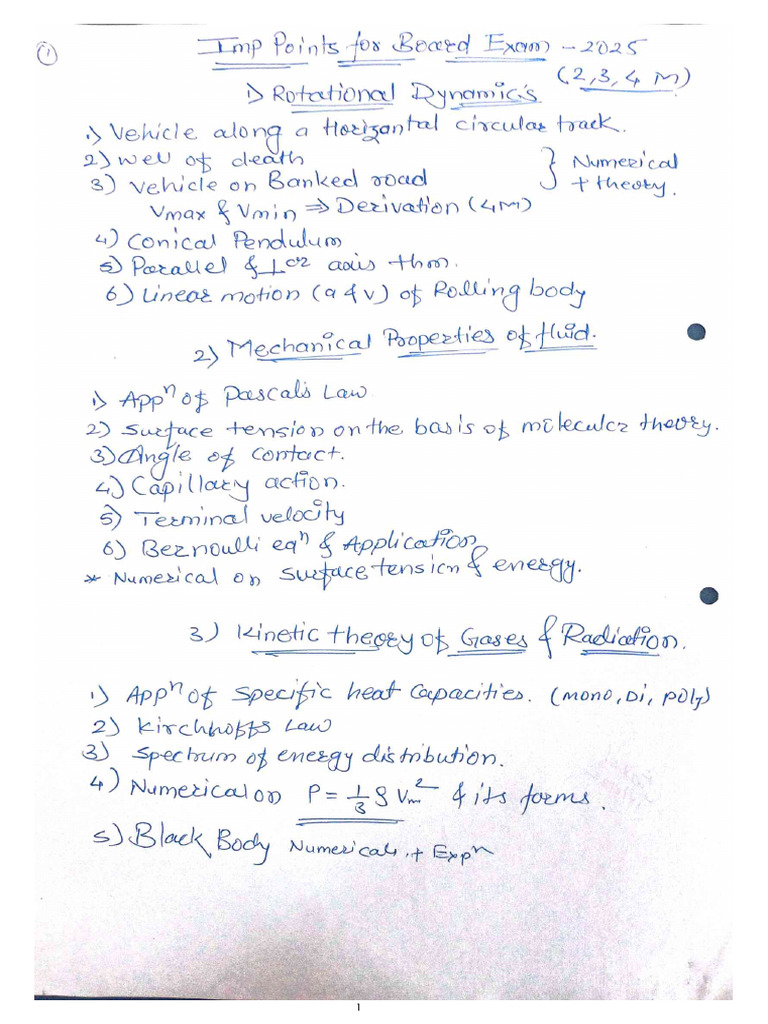 ①
Imp Points for Board Exam - 2025
(2,3,4 M)
1) Rotational Dynamics
1) Vehicle along a Horizantal circular track.
2) Well of death
3) Vehicle on Banked road
} Numerical + theory.
Vmax & Vmin ⇒ Derivation (4M)
4) Conical Pendulum
5) Parallel & ⊥cr axis thm.
6) Linear motion (a & v) of Rolling body
2) Mechanical Properties of fluid.
1) Appⁿ of Pascal's Law
2) Surface tension on the basis of moleculer theory.
3) Angle of contact.
4) Capillary action.
5) Terminal velocity
6) Bernoulli eqⁿ & Application
* Numerical on surface tension & energy.
3) Kinetic theory of Gases & Radiation.
1) Appⁿ of specific heat capacities. (mono, Di, poly)
2) Kirchhoffs Law
3) Spectrum of energy distribution.
4) Numerical on P = 1/3 ρ Vm² & its forms.
5) Black Body Numericals + Expⁿ
1